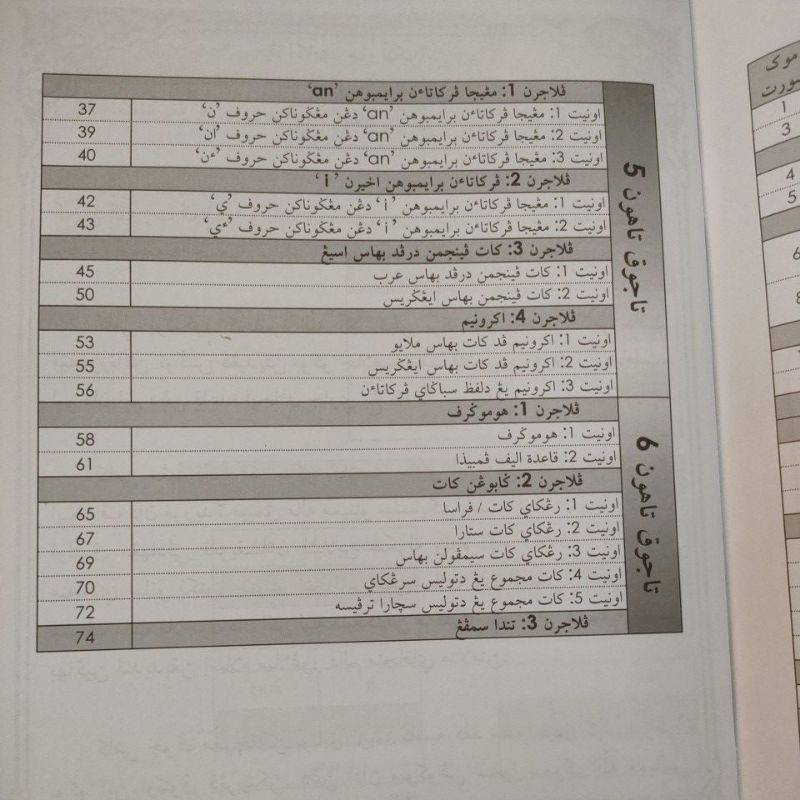 تاجوق تاهون 5
ڤلاجرن 1: مڠيجا ڤرکاتاءن برايمبوهن ‘an’
اونيت 1: مڠيجا ڤرکاتاءن برايمبوهن ‘an’ دڠن مڠݢوناکن حروف ‘ن’ 37
اونيت 2: مڠيجا ڤرکاتاءن برايمبوهن ‘an’ دڠن مڠݢوناکن حروف ‘ان’ 39
اونيت 3: مڠيجا ڤرکاتاءن برايمبوهن ‘an’ دڠن مڠݢوناکن حروف ‘ءن’ 40
ڤلاجرن 2: ڤرکاتاءن برايمبوهن اخيرن ‘i’
اونيت 1: مڠيجا ڤرکاتاءن برايمبوهن ‘i’ دڠن مڠݢوناکن حروف ‘ي’ 42
اونيت 2: مڠيجا ڤرکاتاءن برايمبوهن ‘i’ دڠن مڠݢوناکن حروف ‘ءي’ 43
ڤلاجرن 3: کات ڤينجمن درڤد بهاس اسيڠ
اونيت 1: کات ڤينجمن درڤد بهاس عرب 45
اونيت 2: کات ڤينجمن بهاس ايڠݢريس 50
ڤلاجرن 4: اکرونيم
اونيت 1: اکرونيم ڤد کات بهاس ملايو 53
اونيت 2: اکرونيم ڤد کات بهاس ايڠݢريس 55
اونيت 3: اکرونيم يڠ دلفظ سباݢاي ڤرکاتاءن 56
تاجوق تاهون 6
ڤلاجرن 1: هوموݢرف
اونيت 1: هوموݢرف 58
اونيت 2: قاعدة اليف ڤمبيذا 61
ڤلاجرن 2: ݢابوڠن کات
اونيت 1: رڠکاي کات / فراسا 65
اونيت 2: رڠکاي کات ستارا 67
اونيت 3: رڠکاي کات سيمڤولن بهاس 69
اونيت 4: کات مجموع يڠ دتوليس سرڠکاي 70
اونيت 5: کات مجموع يڠ دتوليس سچارا ترڤيسه 72
ڤلاجرن 3: تندا سمڤڠ 74
موک
سورت
1
3
4
5